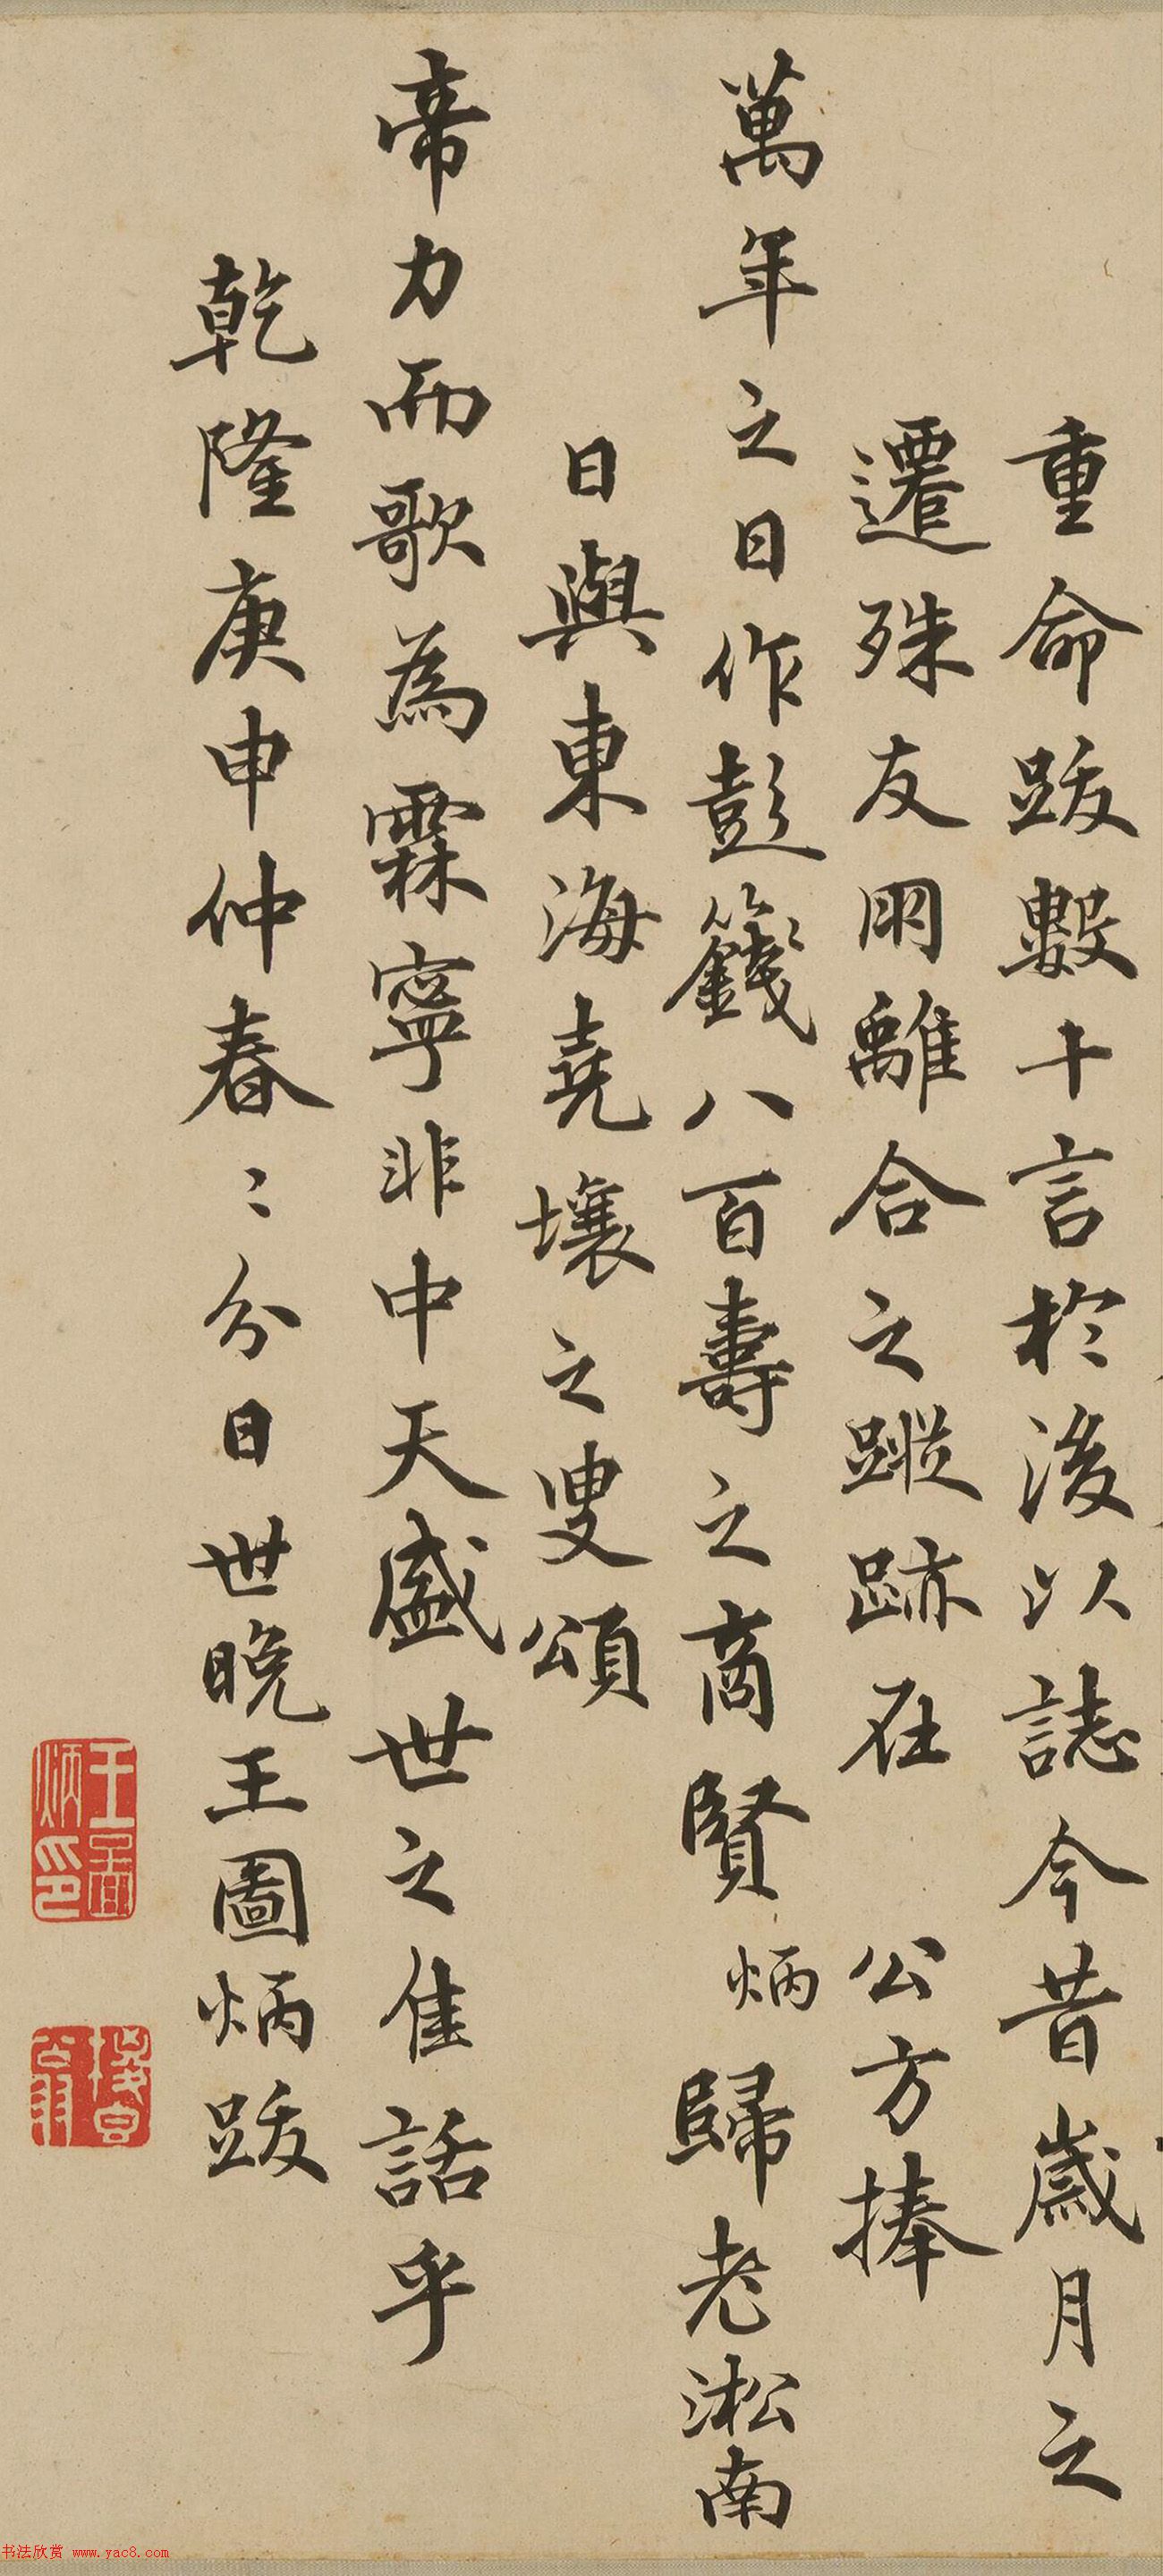 重命跋數十言於後以誌今昔歲月之
遷殊友朋離合之蹤跡在 公方捧
萬年之日作彭籛八百壽之商賢炳歸老淞南
日與東海堯壤之叟頌
帝力而歌為霖寧非中天盛世之佳話乎
乾隆庚申仲春〻分日世晚王圖炳跋
王圖炳印
書法欣赏 www.yac8.com